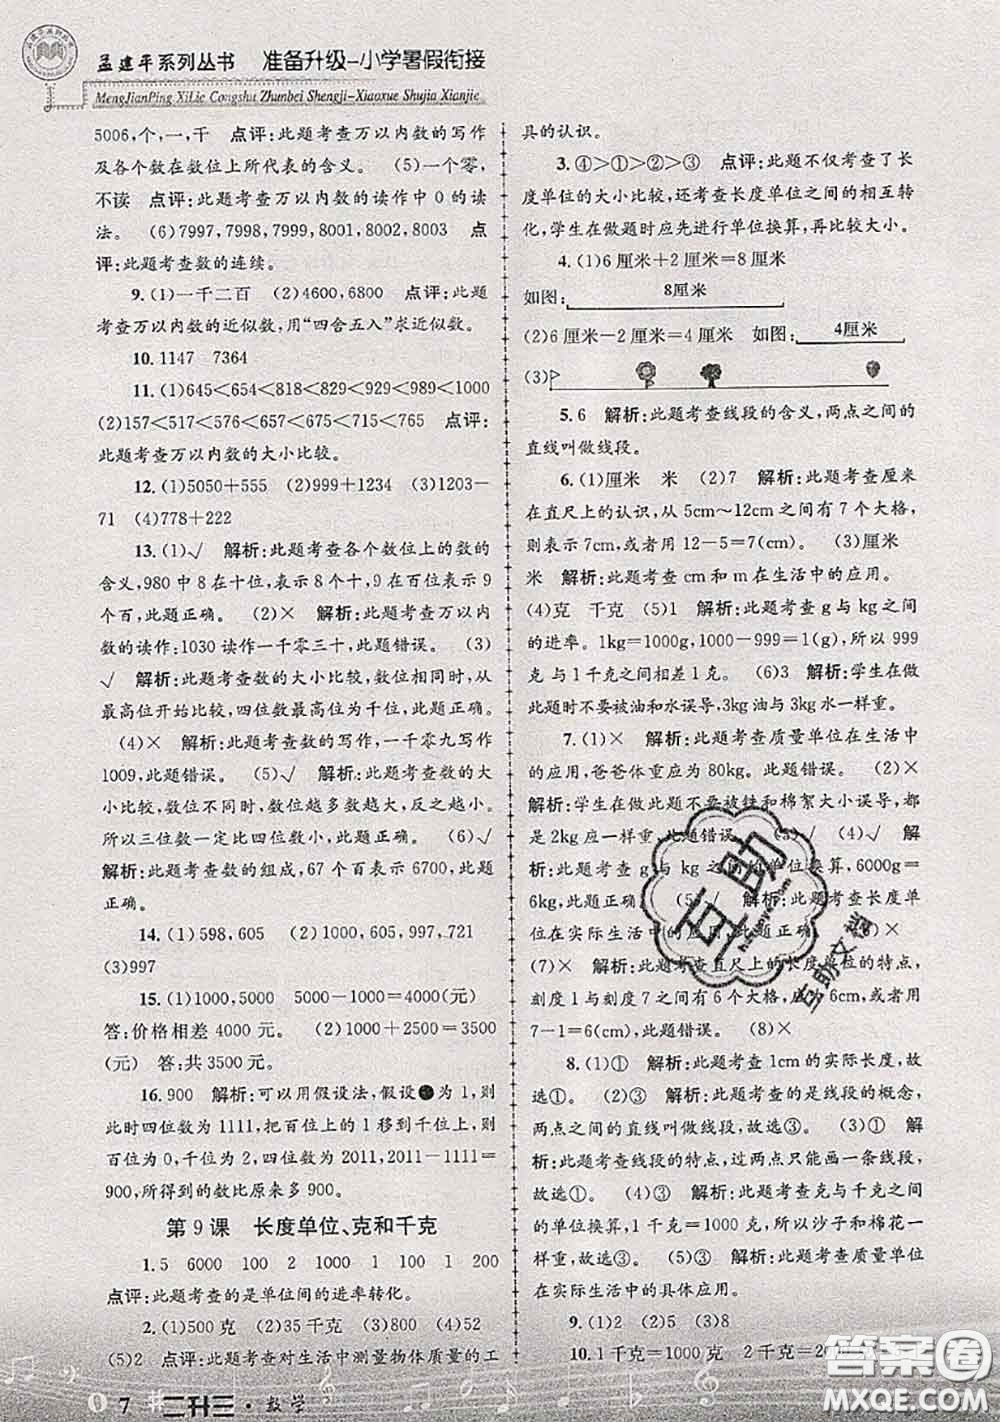 孟建平系列丛书 准备升级-小学暑假衔接
MengJianPing XiLie Congshu Zhunbei Shengji-Xiaoxue Shujia Xianjie
5006,个,一,千 点评:此题考查万以内数的写作
及各个数在数位上所代表的含义。 (5)一个零,
不读 点评:此题考查万以内数的读作中0的读
法。 (6)7997,7998,7999,8001,8002,8003 点
评:此题考查数的连续。
9.(1)一千二百 (2)4600,6800 点评:此题
考查万以内数的近似数,用“四舍五入”求近似数。
10. 1147 7364
11. (1)645<654<818<829<929<989<1000
(2)157<517<576<657<675<715<765 点评:
此题考查万以内数的大小比较。
12. (1)5050+555 (2)999+1234 (3)1203-
71 (4)778+222
13. (1)√ 解析:此题考查各个数位上的数的
含义,980中8在十位,表示8个十,9在百位表示9
个百,此题正确。 (2)× 解析:此题考查万以内
数的读作:1030读作一千零三十,此题错误。 (3)
√ 解析:此题考查数的大小比较,此题正确,从
最高位开始比较,四位数最高位为千位,此题正确。
(4)× 解析:此题考查数的写作,一千零九写作
1009,此题错误。 (5)√ 解析:此题考查数的大
小比较,数位不同时,数位越大数越大,反之越小。
所以三位数一定比四位数小,此题正确。 (6)√
解析:此题考查数的组成,67个百表示6700,此题
正确。
14. (1)598,605 (2)1000,605,997,721
(3)997
15. (1)1000,5000 5000-1000=4000(元)
答:价格相差4000元。 (2)1000+2500=3500
(元) 答:共3500元。
16. 900 解析:可以用假设法,假设●为1,则
此时四位数为1111,把百位上的1移到千位上,则
百位为0,千位为2,四位数为2011,2011-1111=
900,所得的数比原来多900。
第9课 长度单位、克和千克
1. 5 6000 100 2 1000 1 100 1 200
点评:此题考查的是单位间的进率转化。
2. (1)500克 (2)35千克 (3)100克 (4)52
(5)2 点评:此题考查对生活中测量物体质量的工
7 二升三·数学
具的认识。
3. ④>①>②>③ 点评:此题不仅考查了长
度单位的大小比较,还考查长度单位之间的相互转
化,学生在做题时应先进行单位换算,再比较大小。
4. (1)6厘米+2厘米=8厘米
如图: 8厘米
(2)6厘米-2厘米=4厘米 如图: 4厘米
(3)
5. 6 解析:此题考查线段的含义,两点之间的
直线叫做线段。
6. (1)厘米 米 (2)7 解析:此题考查厘米
在直尺上的认识,从5cm~12cm中间有7个大格,
则表示7cm,或者用12-5=7(cm)。 (3)厘米
米 解析:此题考查cm和m在生活中的应用。
(4)克 千克 (5)1 解析:此题考查g与kg之间
的进率。1kg=1000g,1000-999=1(g),所以999
克与1千克之间相差1克。 (6)3 解析:学生在做
此题时不要被油和水误导,3kg油与3kg水一样重。
7. (1)× 解析:此题考查质量单位在生活中
的应用,爸爸体重应为80kg。此题错误。 (2)×
解析:学生在做此题不要被铁和棉絮大小误导,都
是2kg应一样重,此题错误。 (3)√ (4)√ 解
析:此题考查g与kg之间的单位换算,6000g=
6kg,此题正确。 (5)√ 解析:此题考查长度单
位在实际生活中的应用,此题正确。
(7)× 解析:此题考查直尺上的长度单位的特点,
刻度1与刻度7之间有6个大格,应为6cm,或者用
7-1=6(cm),此题错误。 (8)×
8. (1)① 解析:此题考查1cm的实际长度,故
选①。 (2)③ 解析:此题考查的是线段的概念,
两点之间的直线叫做线段,故选③。 (3)① 解
析:此题考查线段的特点,过两点只能画一条线段,
故选①。 (4)③ 解析:此题考查克与千克之间
的单位换算,1千克=1000克,所以沙子和棉花一
样重,故选③。 (5)③ 解析:此题考查质量单位
在实际生活中的具体应用。
9. (1)2 (2)5 (3)8
10. 1千克=1000克
互助
互助文档
答案圈
MXQE.COM